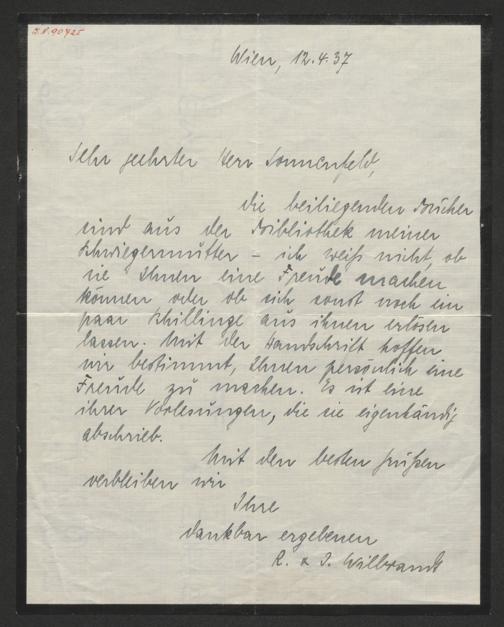 I.N. 90425
Wien, 12.4.37
Sehr geehrter Herr Sonnenfeld,
die beiliegenden Bücher
sind aus der Bibliothek meiner
Schwiegermutter – ich weiß nicht, ob
sie Ihnen eine Freude machen
können oder ob sich sonst noch ein
paar Schillinge aus ihnen erlösen
lassen. Mit der Handschrift hoffen
wir bestimmt, Ihnen persönlich eine
Freude zu machen. Es ist eine
ihrer Vorlesungen, die sie eigenhändig
abschrieb.
Mit den besten Grüßen
verbleiben wir
Ihre
dankbar ergebenen
R. & I. Wilbrandt